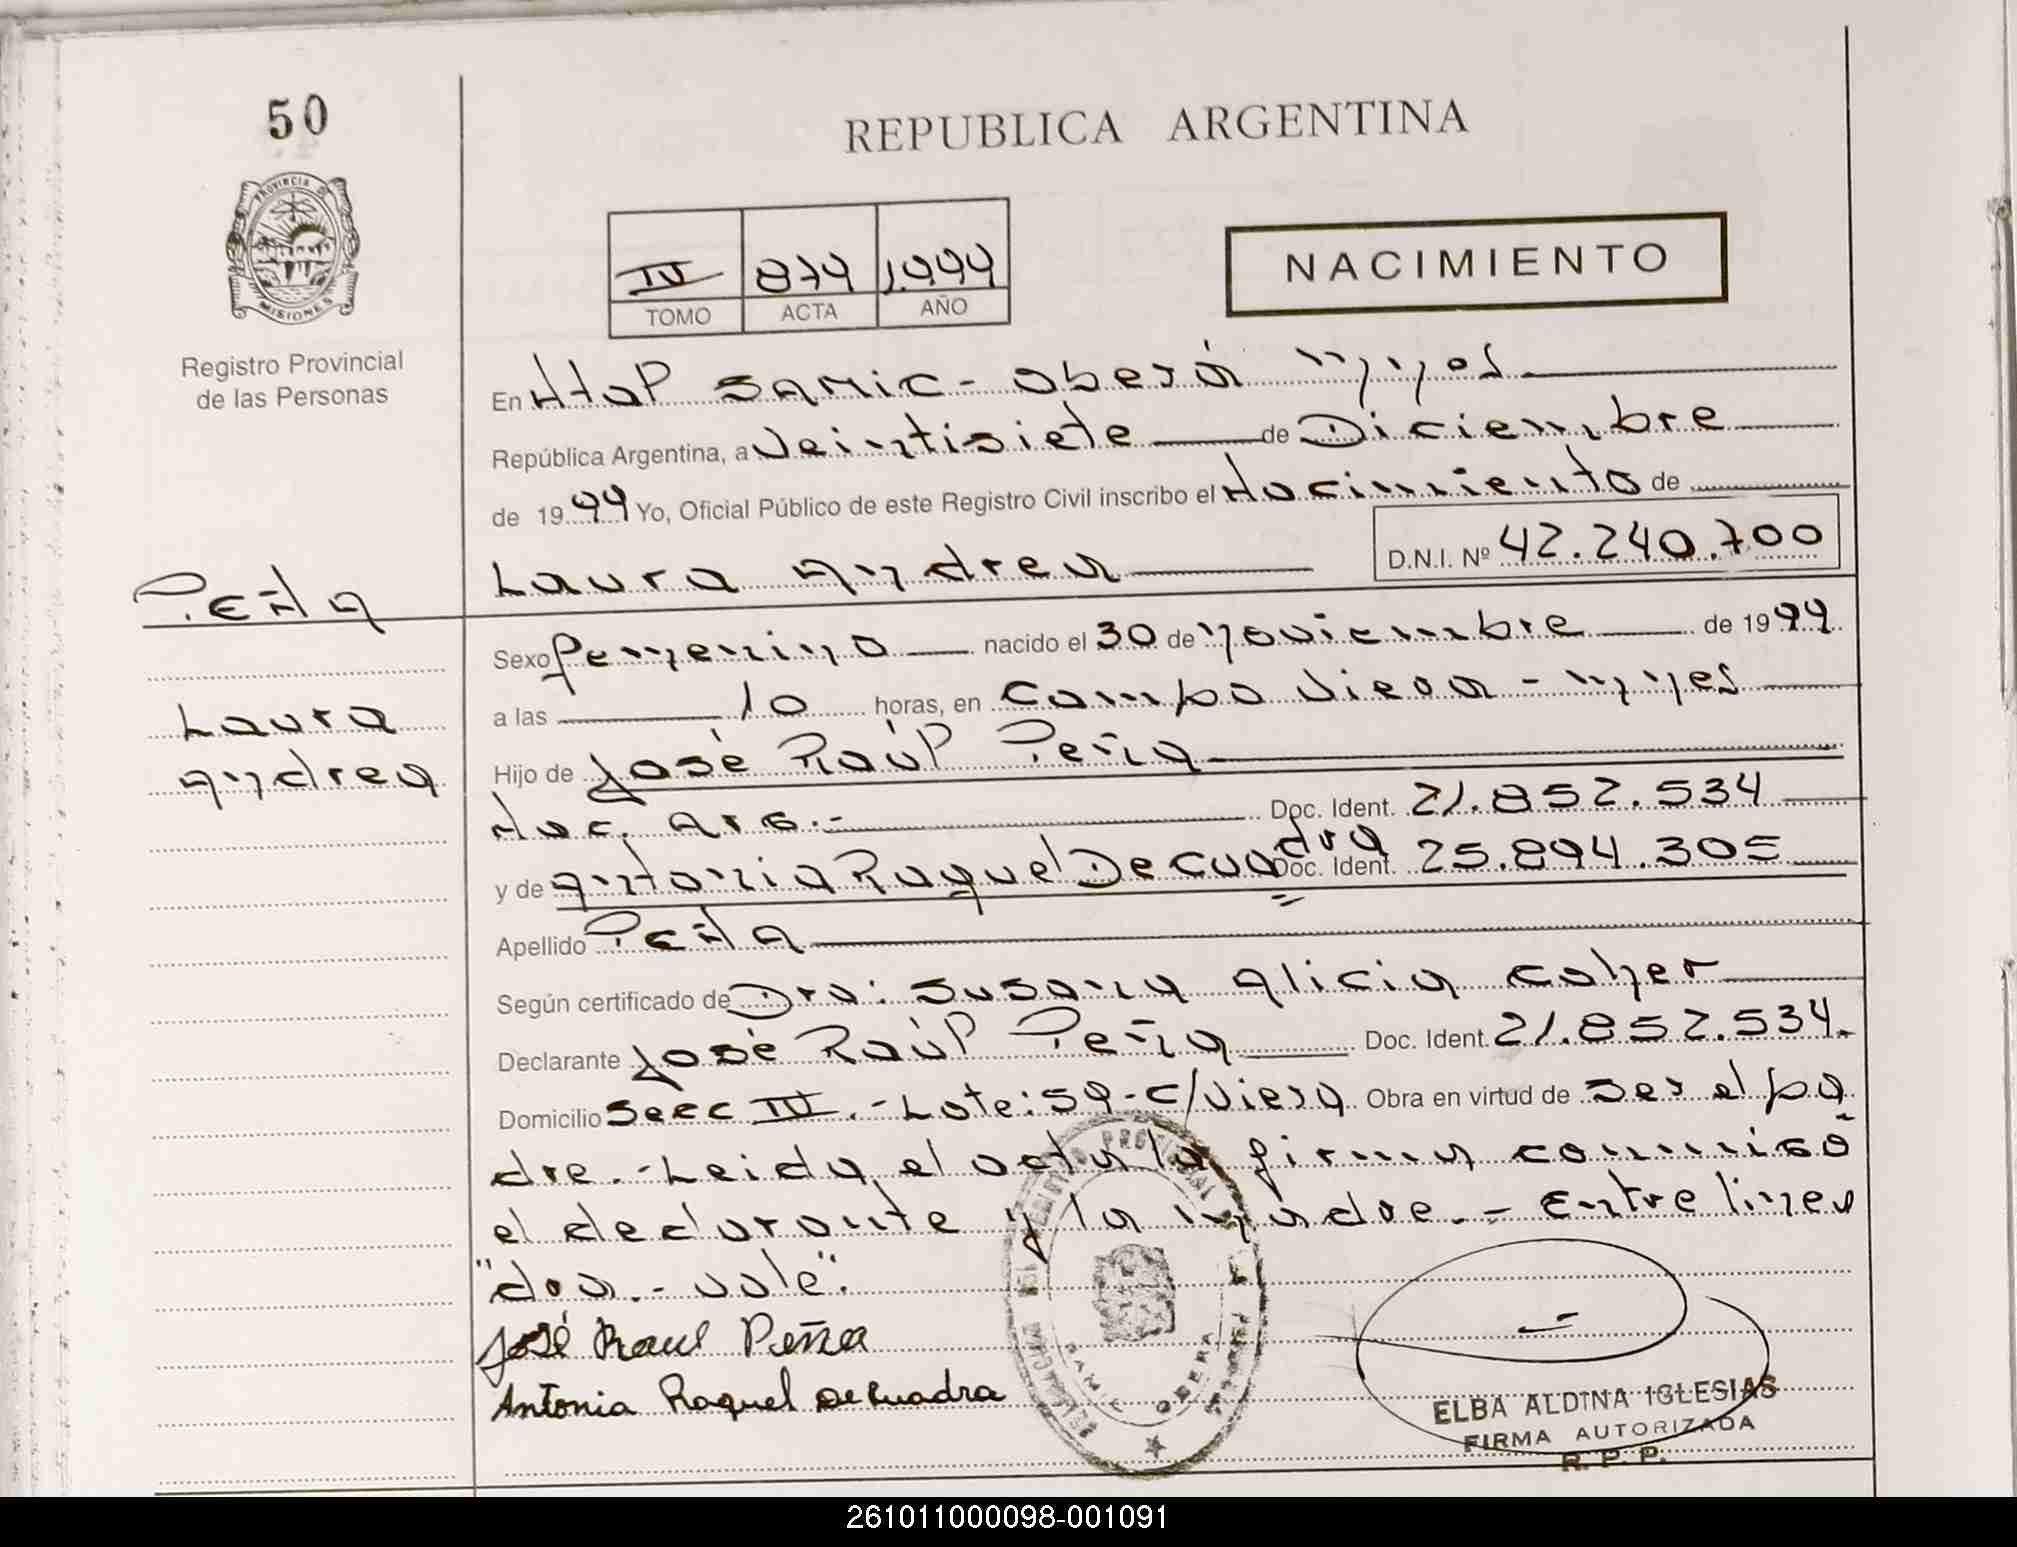 50
REPUBLICA ARGENTINA
PROVINCIA DE
MISIONES
Registro Provincial
de las Personas
IV 874 1.999
TOMO ACTA AÑO
NACIMIENTO
En Hop SAMIC - Oberá Mnes
República Argentina, a Veintisiete de Diciembre
de 1999 Yo, Oficial Público de este Registro Civil inscribo el Nacimiento de
Laura Andrea D.N.I. Nº 42.240.700
Peña
Laura
Andrea
Sexo femenino nacido el 30 de Noviembre de 1999
a las 10 horas, en Campo Viera - Mnes
Hijo de José Raúl Peña
Nac. Arg.- Doc. Ident. 21.852.534
dra
y de Antonia Raquel De Cua Doc. Ident. 25.894.305
Apellido Peña
Según certificado de Dra: Susana Alicia
Declarante José Raúl Peña Doc. Ident. 21.852.534.-
Domicilio Secc IV.- Lote: 59 - C/Viera Obra en virtud de ser el pa
dre.- Leida el acta la firma conmigo
el declarante y la madre.- Entre linea
"dra.- vale".
José Raul Peña
Antonia Raquel De Cuadra
SAMIC OBERA
ELBA ALDINA IGLESIAS
FIRMA AUTORIZADA
R. P. P.
261011000098-001091